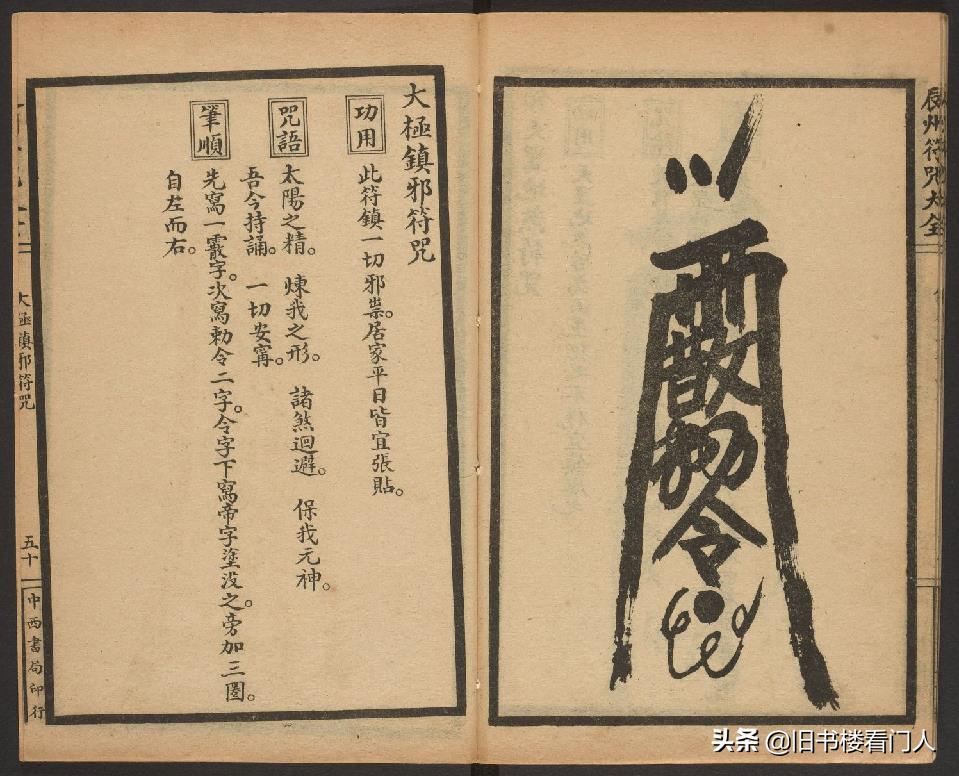 辰州符咒大全
霰
勅
令
大極鎮邪符咒
功用
此符鎮一切邪祟。居家平日皆宜張貼。
咒語
太陽之精。煉我之形。諸煞迴避。保我元神。
吾今持誦。一切安寗。
筆順
先寫一霰字。次寫勅令二字。令字下寫帝字塗没之。旁加三圈。
自左而右。
大極鎮邪符咒
五十
中西書局印行
头条 @旧书楼看门人